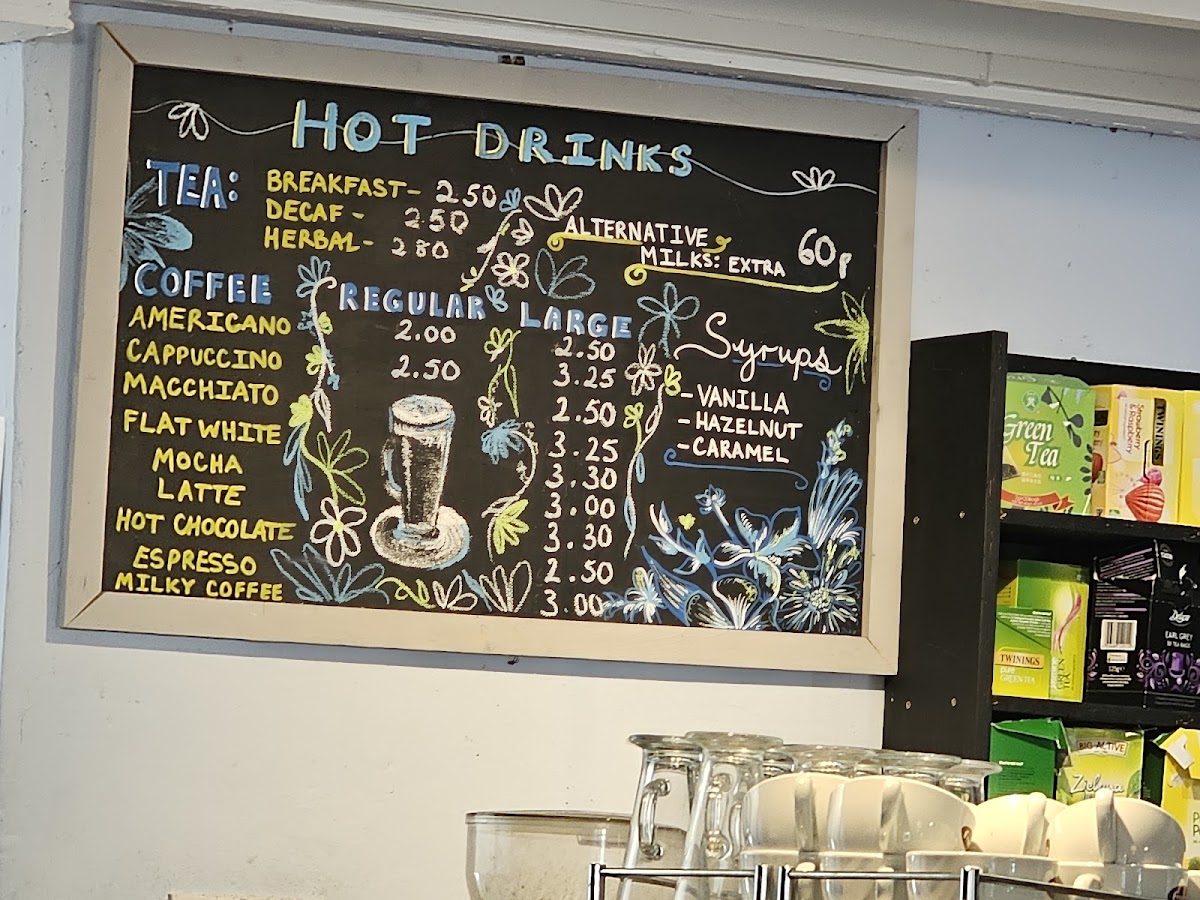 HOT DRINKS
TEA:
BREAKFAST- 2.50
DECAF - 2.50
HERBAL- 2.80
ALTERNATIVE
MILKS: EXTRA
60p
COFFEE REGULAR LARGE
AMERICANO 2.00 2.50
CAPPUCCINO 2.50 3.25
MACCHIATO 2.50
FLAT WHITE 3.25
MOCHA 3.30
LATTE 3.00
HOT CHOCOLATE 3.30
ESPRESSO 2.50
MILKY COFFEE 3.00
Syrups
-VANILLA
-HAZELNUT
-CARAMEL
Green
Tea
Strawberry
& Raspberry
TWININGS
TWININGS
pure
GREEN TEA
GREEN TEA
EARL GREY
BIG-ACTIVE
Zielona